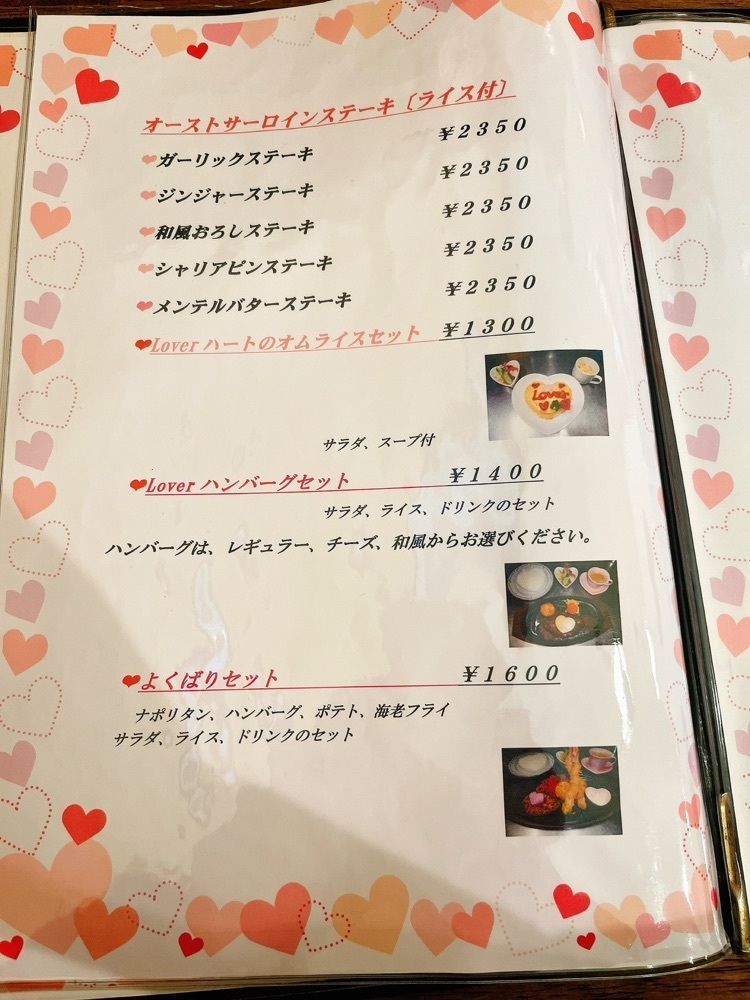 オーストサーロインステーキ〔ライス付〕
❤ガーリックステーキ ￥2350
❤ジンジャーステーキ ￥2350
❤和風おろしステーキ ￥2350
❤シャリアピンステーキ ￥2350
❤メンテルバターステーキ ￥2350
❤Lover ハートのオムライスセット ￥1300
Lover
サラダ、スープ付
❤Lover ハンバーグセット ￥1400
サラダ、ライス、ドリンクのセット
ハンバーグは、レギュラー、チーズ、和風からお選びください。
❤よくばりセット ￥1600
ナポリタン、ハンバーグ、ポテト、海老フライ
サラダ、ライス、ドリンクのセット